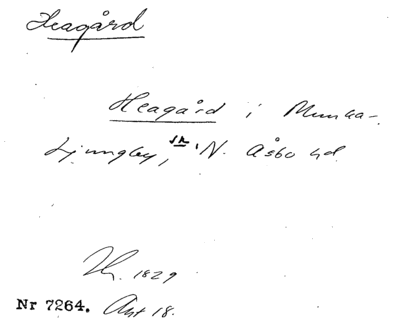 Heagård
Heagård i Munka-
Ljungby, sn, N. Åsbo hd
1829.
Nr 7264. Avt 18.